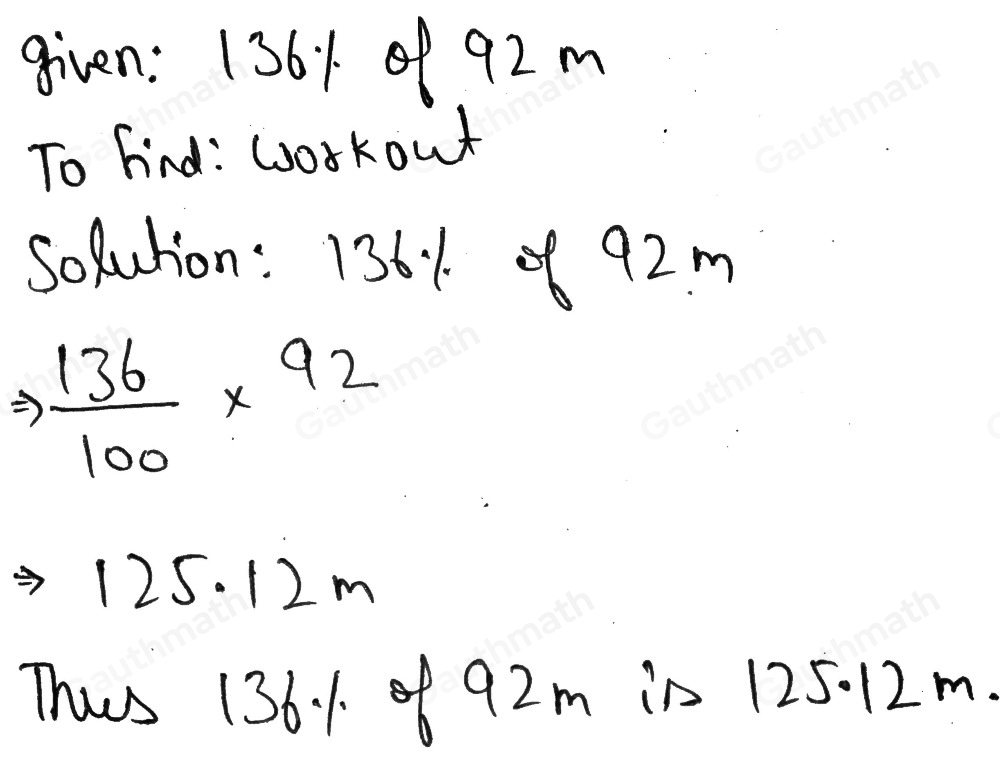 given: 136% of 92 m
To find: workout
Solution: 136% of 92 m
⇒ 136/100 × 92
⇒ 125.12 m
Thus 136% of 92 m is 125.12 m.
Gauthmath